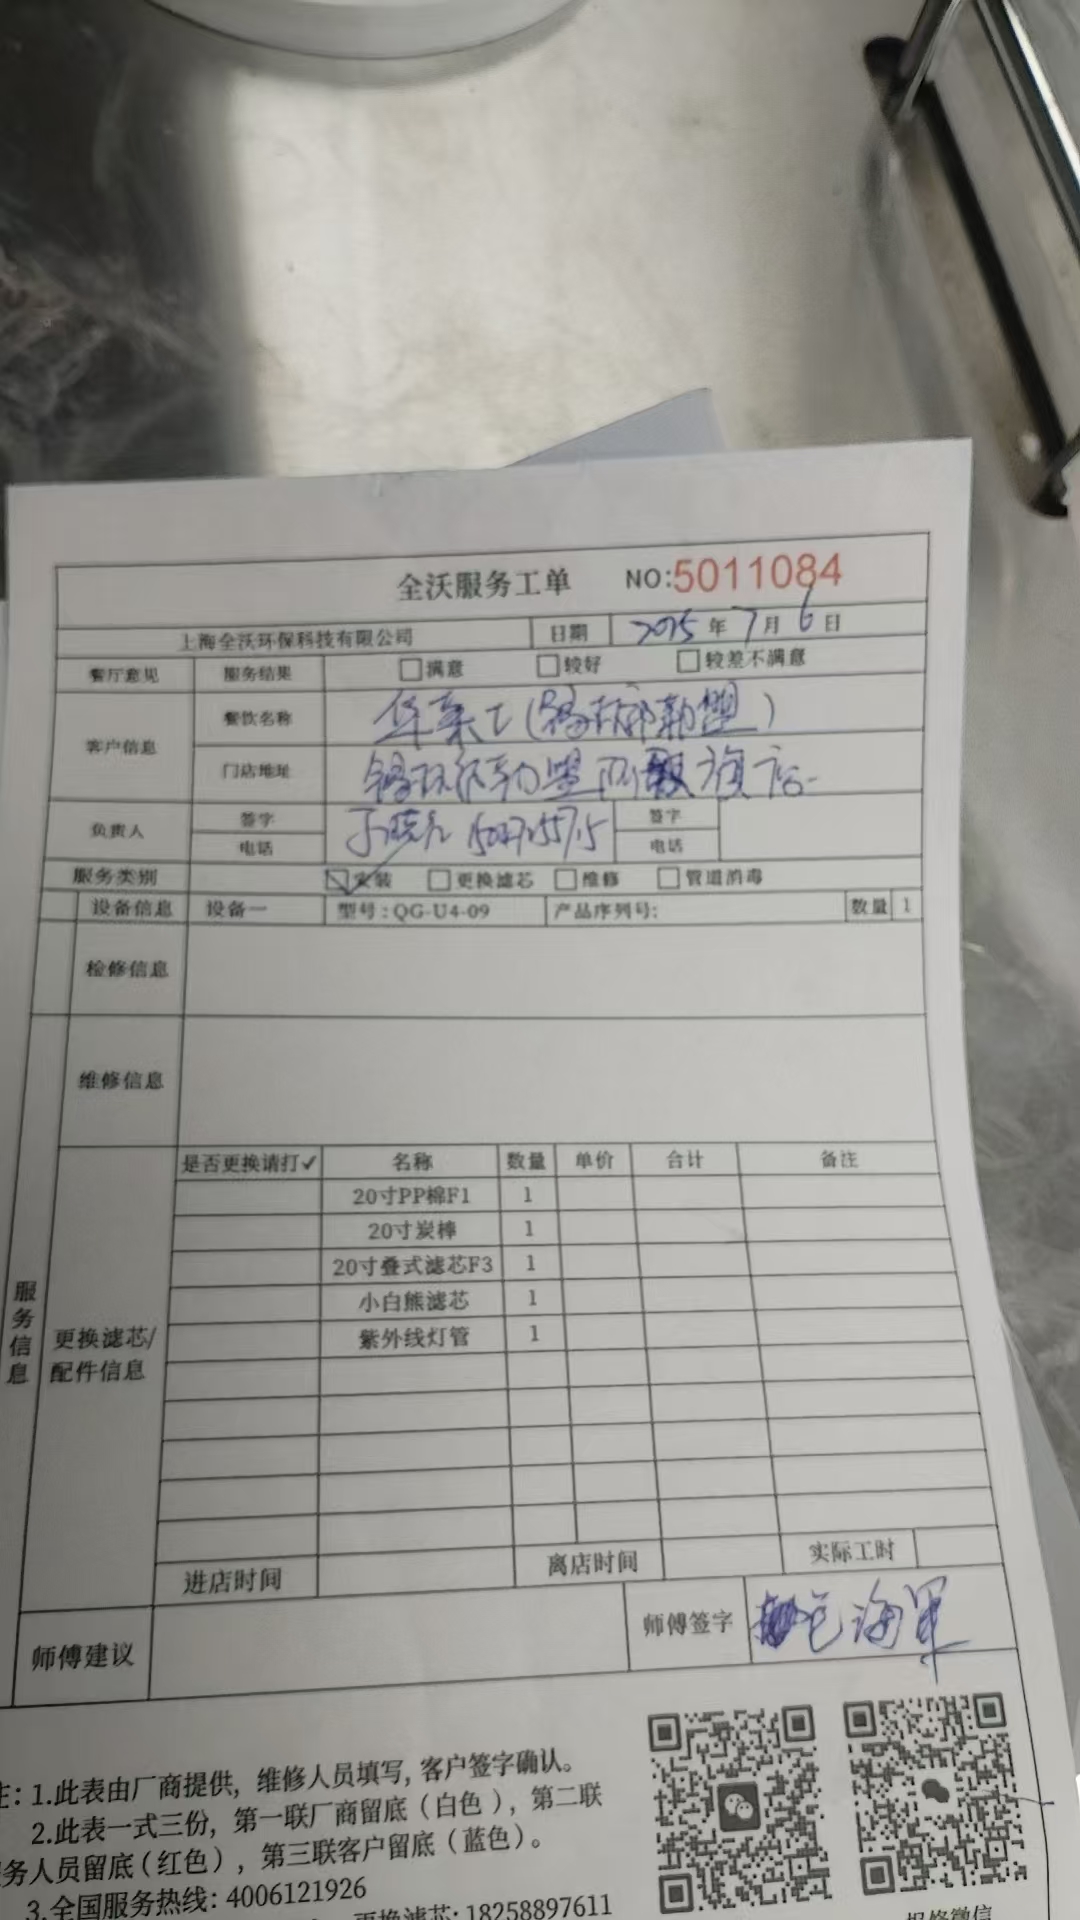 全沃服务工单 NO:5011084
上海全沃环保科技有限公司 日期 2025年7月6日
餐厅意见 服务结果 □满意 □较好 □较差不满意
客户信息 餐饮名称 华莱士(锡林郭勒盟)
门店地址 锡林郭勒盟 旗店
负责人 签字 签字
电话 电话
服务类别 ☑安装 □更换滤芯 □维修 □管道消毒
设备信息 设备一 型号:QG-U4-09 产品序列号: 数量 1
检修信息
维修信息
服务信息
更换滤芯/配件信息
是否更换请打✓ 名称 数量 单价 合计 备注
20寸PP棉F1 1
20寸炭棒 1
20寸叠式滤芯F3 1
小白熊滤芯 1
紫外线灯管 1
进店时间 离店时间 实际工时
师傅建议 师傅签字 海军
注:1.此表由厂商提供,维修人员填写,客户签字确认。
2.此表一式三份,第一联厂商留底(白色),第二联
务人员留底(红色),第三联客户留底(蓝色)。
3.全国服务热线:4006121926
更换滤芯:18258897611
报修微信